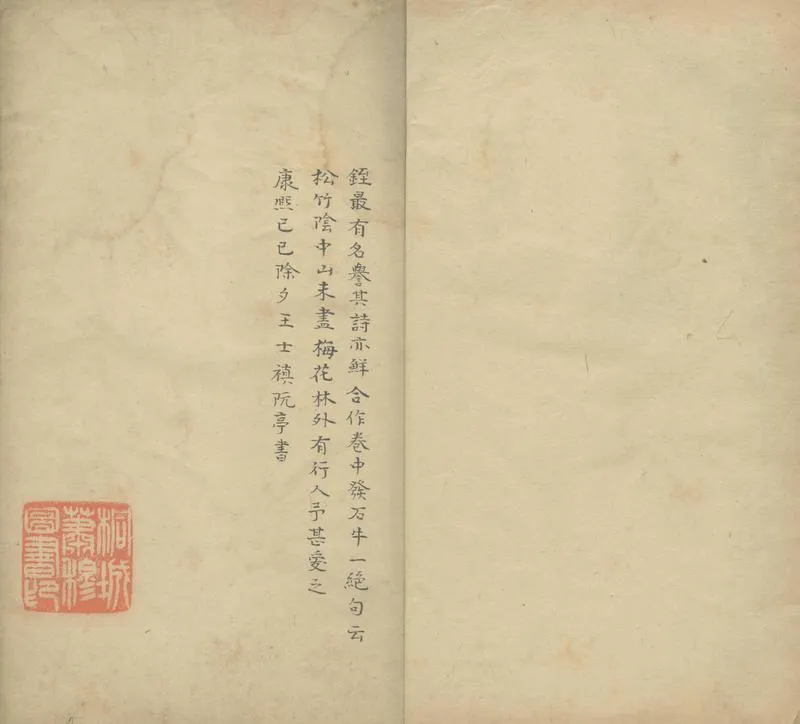 銍最有名譽其詩亦鮮合作卷中發石牛一絕句云
松竹陰中山未盡梅花林外有行人予甚愛之
康熙己巳除夕王士禛阮亭書
桐城
蕭穆
圖書印